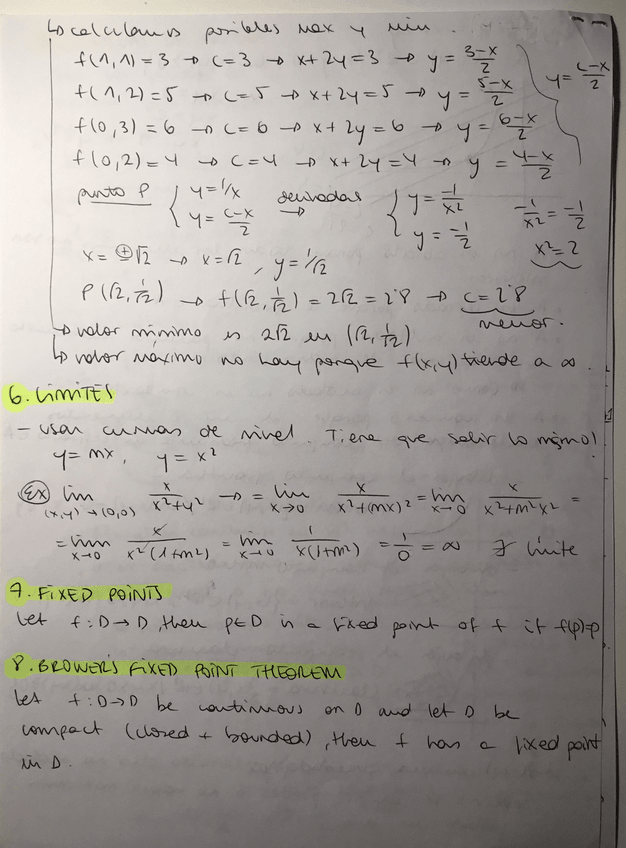 ↳ calculamos posibles max y min.
f(1,1) = 3 → c=3 → x+2y=3 → y = (3-x)/2
f(1,2) = 5 → c=5 → x+2y=5 → y = (5-x)/2
y = (c-x)/2
f(0,3) = 6 → c=6 → x+2y=6 → y = (6-x)/2
f(0,2) = 4 → c=4 → x+2y=4 → y = (4-x)/2
punto P { y=1/x , y=(c-x)/2 derivadas → { y = -1/x² , y = -1/2 -1/x² = -1/2
x²=2
x = ±√2 → x=√2, y=1/√2
P(√2, 1/√2) → f(√2, 1/√2) = 2√2 = 2'8 → c=2'8
menor.
↳ valor mínimo is 2√2 en (√2, 1/√2)
↳ valor máximo no hay porque f(x,y) tiende a ∞.
6. LIMITES
- usar curvas de nivel. Tiene que salir lo mismo!
y = mx, y = x²
Ex lim (x,y)→(0,0) x/(x²+y²) → = lim x→0 x/(x²+(mx)²) = lim x→0 x/(x²+m²x²) =
= lim x→0 x/(x²(1+m²)) = lim x→0 1/(x(1+m²)) = 1/0 = ∞ ∄ límite
7. FIXED POINTS
Let f: D→D, then p∈D is a fixed point of f if f(p)=p
8. BROWER'S FIXED POINT THEOREM
Let f: D→D be continuous on D and let D be
compact (closed + bounded), then f has a fixed point
in D.